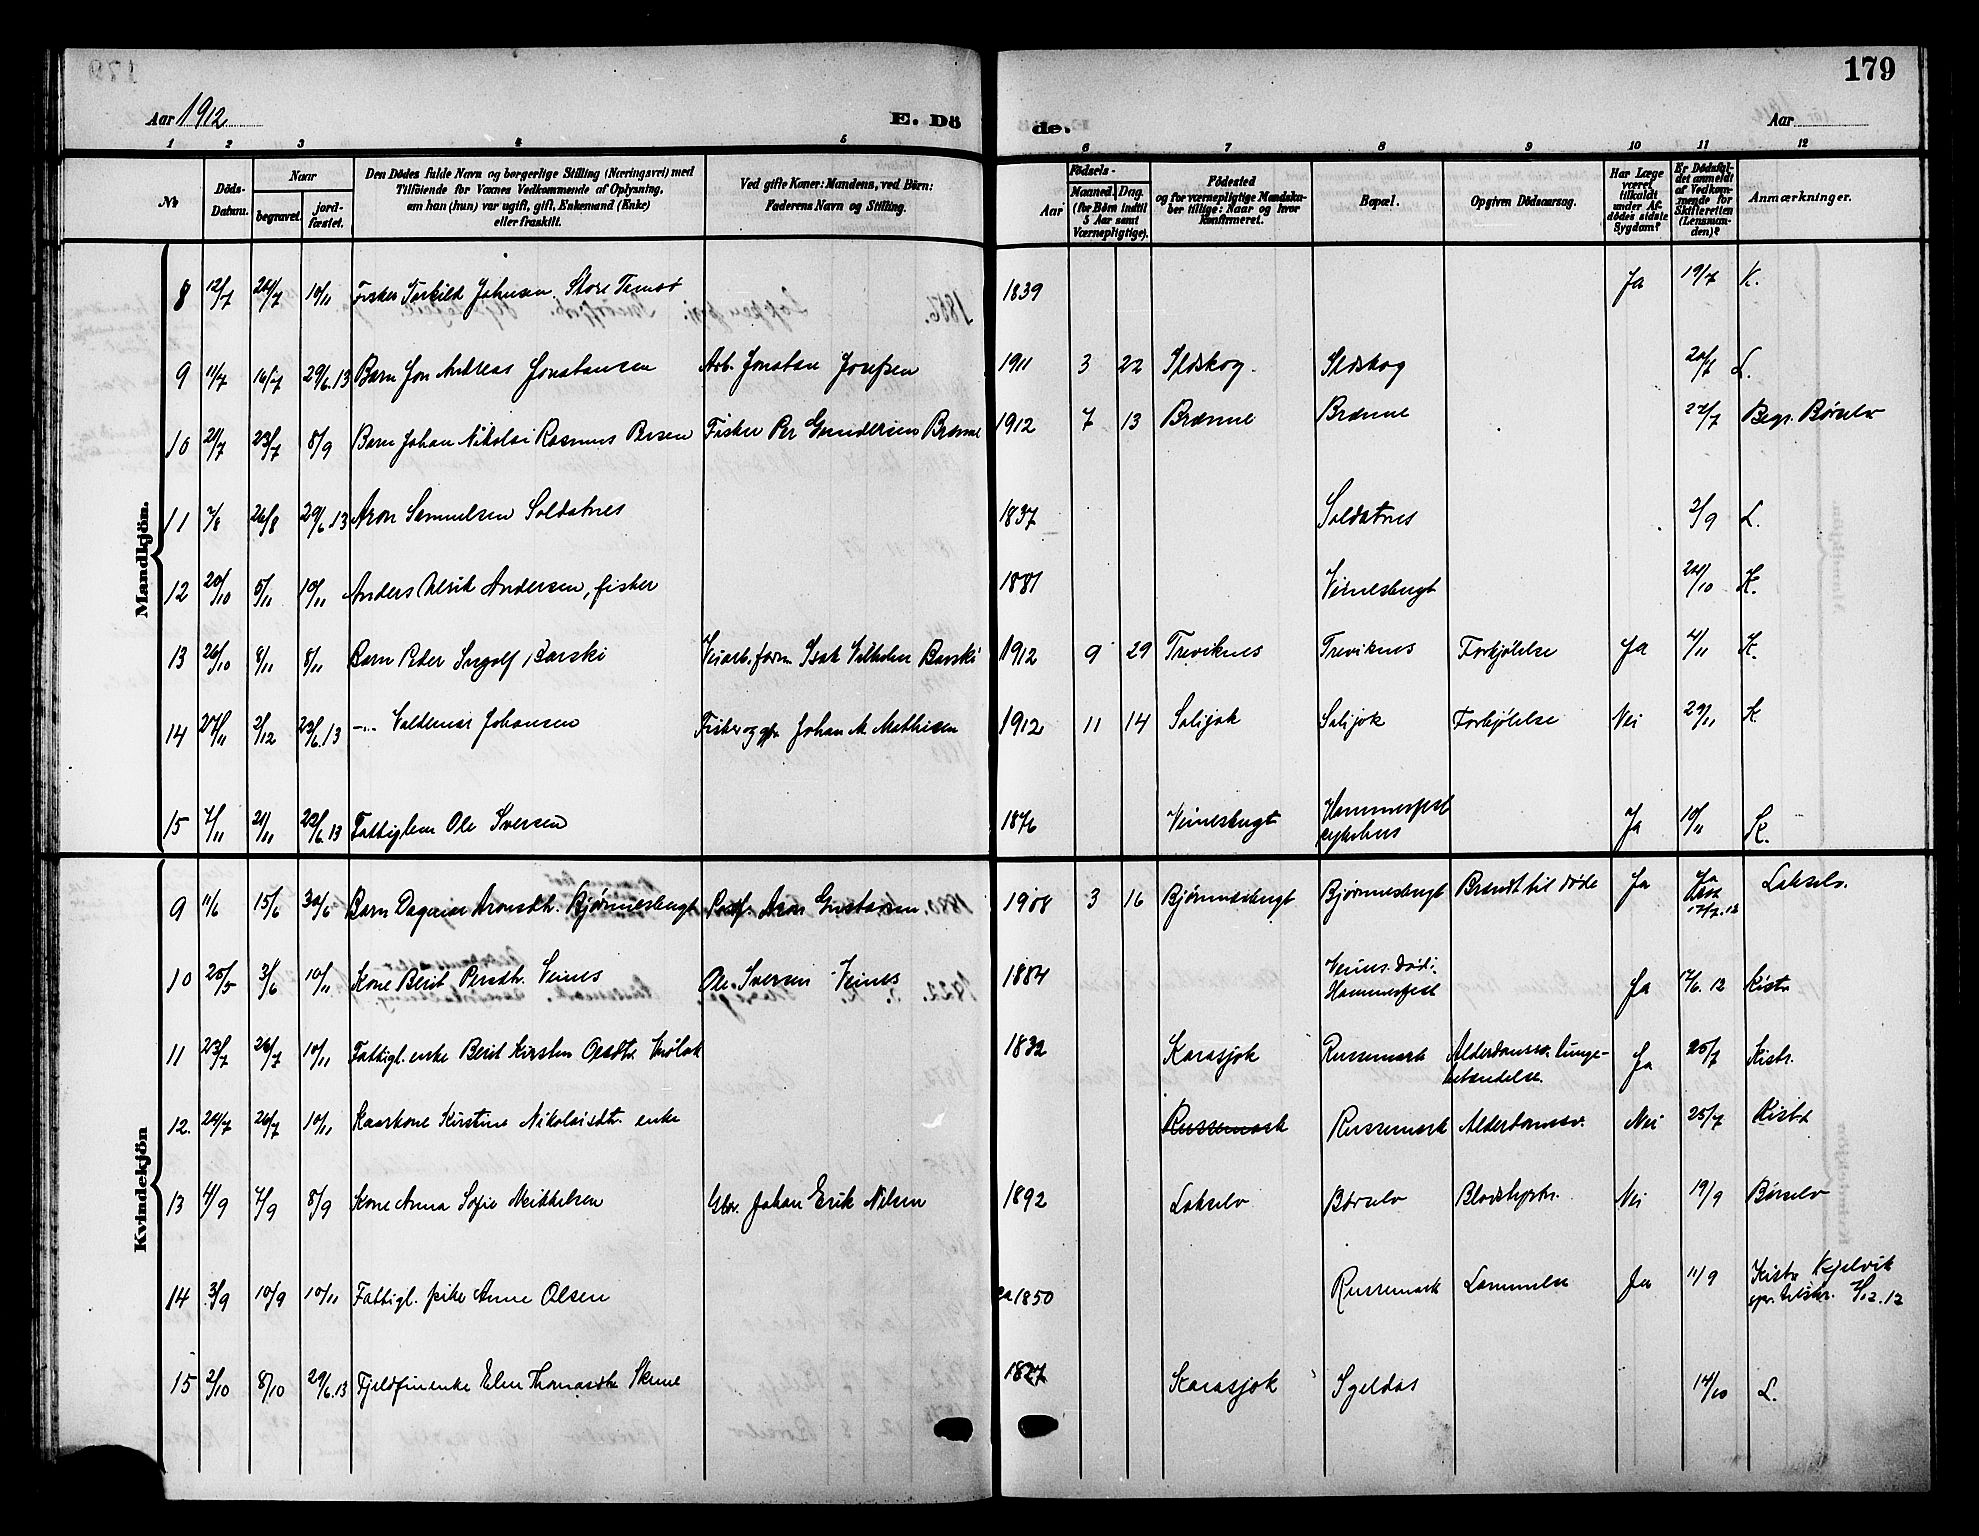 179
Aar 1912
E. Dö
de.
Aar
1 2 3 4 5 6 7 8 9 10 11 12
No
Döds-
Datum.
Naar
begravet.
jord-
fæstet.
Den Dödes fulde Navn og borgerlige Stilling (Næringsvei) med
Tilföiende for Voxnes Vedkommende af Oplysning,
om han (hun) var ugift, gift, Enkemand (Enke)
eller fraskilt.
Ved gifte Koner: Mandens, ved Börn:
Faderens Navn og Stilling.
Födsels-
Aar
Maaned. Dag.
(for Börn indtil
5 Aar samt
Værnepligtige).
Födested
og for værnepligtige Mandska-
ber tillige: Naar og hvor
konfirmeret.
Bopæl.
Opgiven Dödsaarsag.
Har Læge
været
tilkaldt
under Af-
dödes sidste
Sygdom?
Er Dödsfal-
det anmeldt
af Vedkom-
mende for
Skifteretten
(Lensman-
den)?
Anmærkninger.
Mandkjön.
8 12/7 24/7 10/11 Fisker Torkild Johnsen. Store Tamsø 1839 Ja 19/7 K.
9 11/7 16/7 29/6.13 Barn Jon Andreas Jonatansen Arb. Jonatan Josefsen 1911 3 22 Ildskog. Ildskog 20/7 L.
10 21/7 23/7 8/9 Barn Johan Nikolai Rasmus Persen Fisker Per Gundersen Brænne 1912 7 13 Brænne Brænne 22/7 Begr. Børselv
11 7/8 26/8 29/6.13 Aron Samuelsen Soldatnes 1837 Soldatnes 2/9 L.
12 20/10 5/11 10/11 Anders Ulrik Andersen, fisker 1881 Veinesbugt 24/10 K.
13 26/10 8/11 8/11 Barn Peder Ingolf Barski Veiarb.form. Isak Vilhelm Barski 1912 9 29 Treviknes Treviknes Forkjølelse Ja 4/11 K.
14 27/11 2/12 23/6.13 -"- Valdemar Johansen Fisker og gbr. Johan M. Mathisen 1912 11 14 Salijok Salijok Forkjølelse Nei 29/11 K
15 7/11 21/11 22/6.13 Fattiglem Ole Iversen 1876 Veinesbugt Hammerfest
sykehus Ja 10/11 K.
Kvindekjön
9 11/6 15/6 30/6 Barn Dagmar Aronsdtr. Bjørnnesbugt Aron Gustavsen 1908 3 16 Bjørnnesbugt Bjørnnesbugt Brændt til døde Ja Ja
17/7.12 Lakselv.
10 25/5 3/6 10/11 Kone Berit Persdtr. Veines Ole Iversen Veines 1884 Veines. Død i
Hammerfest Ja 17/6.12 Kistr
11 23/7 26/7 10/11 Fattigl. enke Berit Kirsten Olsdtr. 1832 Karasjok Russemark Alderdomssv. lunge-
betændelse. Ja 25/7 Kistr.
12. 24/7 26/7 10/11 Kaarkone Kirstine Nikolaisdtr. enke Russemark Russemark Alderdomssv. Nei 25/7 Kistr
13 4/9 7/9 8/9 Kone Anna Sofie Mikkelsen Gbr. Johan Erik Nilsen 1892 Lakselv Børselv Blodstyrtn. Nei 19/9 Børselv
14 3/9 10/9 10/11 Fattigl. pike Anne Olsen ca 1850 Russemark Lammelse Ja 11/9 Kistr Kjelvik
15 2/10 8/10 29/6.13 Fjeldfinenke Elen Thomasdtr. Skum 1827 Karasjok Igeldas 14/10 L.